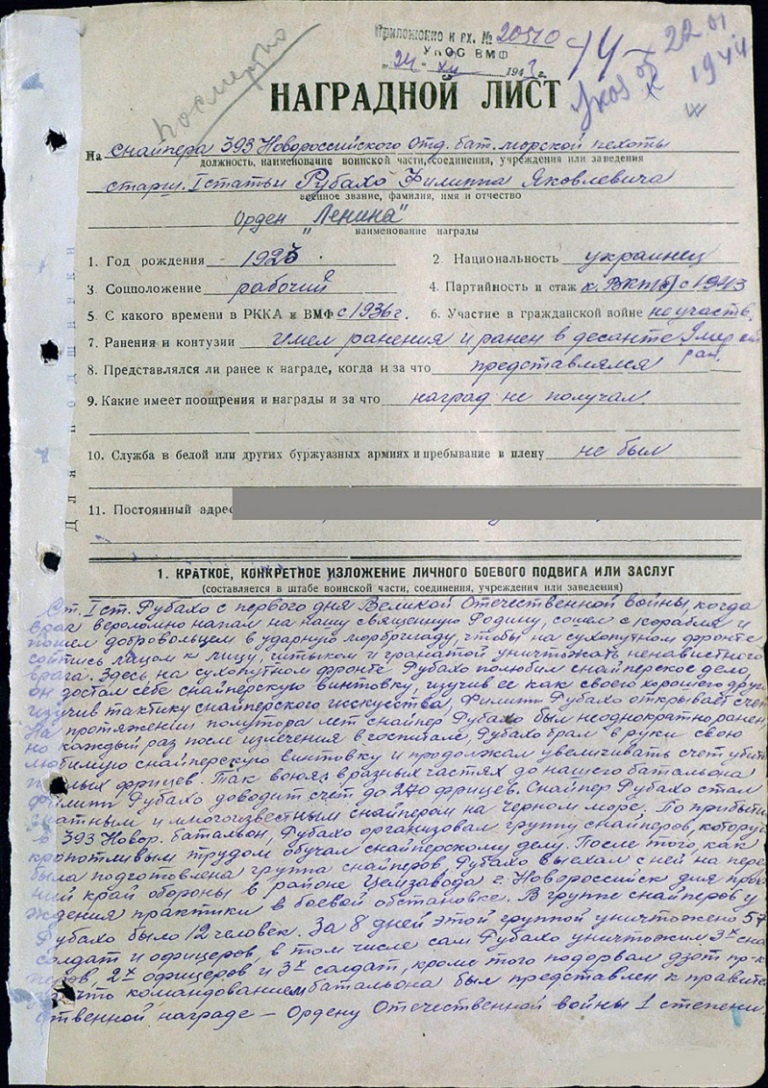 посмертно
Приложение к вх. № 20510
УКОС ВМФ
"24" XII 1943 г.
22 01
1944
НАГРАДНОЙ ЛИСТ
На снайпера 393 Новороссийского Отд. бат. морской пехоты
должность, наименование воинской части, соединения, учреждения или заведения
старш. I статьи Рубахо Филиппа Яковлевича
военное звание, фамилия, имя и отчество
Орден "Ленина"
наименование награды
1. Год рождения 1923
2. Национальность украинец
3. Соцположение рабочий
4. Партийность и стаж к. ВКП(б) с 1943
5. С какого времени в РККА и ВМФ с 1936 г.
6. Участие в гражданской войне не участв.
7. Ранения и контузии имел ранения и ранен в десанте Умер от ран.
8. Представлялся ли ранее к награде, когда и за что представлялся
9. Какие имеет поощрения и награды и за что наград не получал
10. Служба в белой или других буржуазных армиях и пребывание в плену не был
11. Постоянный адрес
Для подшивки
1. КРАТКОЕ, КОНКРЕТНОЕ ИЗЛОЖЕНИЕ ЛИЧНОГО БОЕВОГО ПОДВИГА ИЛИ ЗАСЛУГ
(составляется в штабе воинской части, соединения, учреждения или заведения)
Ст. I ст. Рубахо с первого дня Великой Отечественной войны, когда
враг вероломно напал на нашу священную Родину, сошел с корабля и
пошел добровольцем в ударную морбригаду, чтобы на сухопутном фронте
сойтись лицом к лицу, штыком и гранатой уничтожать ненавистного
врага. Здесь на сухопутном фронте Рубахо полюбил снайперское дело,
он достал себе снайперскую винтовку, изучив ее как своего хорошего друга
изучив тактику снайперского исскуства, Филипп Рубахо открывает счет
На протяжении полутора лет снайпер Рубахо был неоднократно ранен
но каждый раз после излечения в госпитале, Рубахо брал в руки свою
любимую снайперскую винтовку и продолжал увеличивать счет убит
фрицев. Так воюя в разных частях до нашего батальона
Филипп Рубахо доводит счет до 240 фрицев. Снайпер Рубахо стал
знатным и многоизвестным снайпером на черном море. По прибытии
в 393 Новор. баталион, Рубахо организовал группу снайперов, которую
кропотливым трудом обучал снайперскому делу. После того, как
была подготовлена группа снайперов Рубахо выехал с ней на перед
ний край обороны в районе Цемзавода г. Новороссийск для
ждения практики в боевой обстановке. В группе снайперов у
Рубахо было 12 человек. За 8 дней этой группой уничтожено 57
солдат и офицеров, в том числе сам Рубахо уничтожил 3х снай
перов, 2х офицеров и 3х солдат, кроме того подорвал дзот пр-ка
за что командованием батальона был представлен к правите
ственной награде – Ордену Отечественной войны I степени.